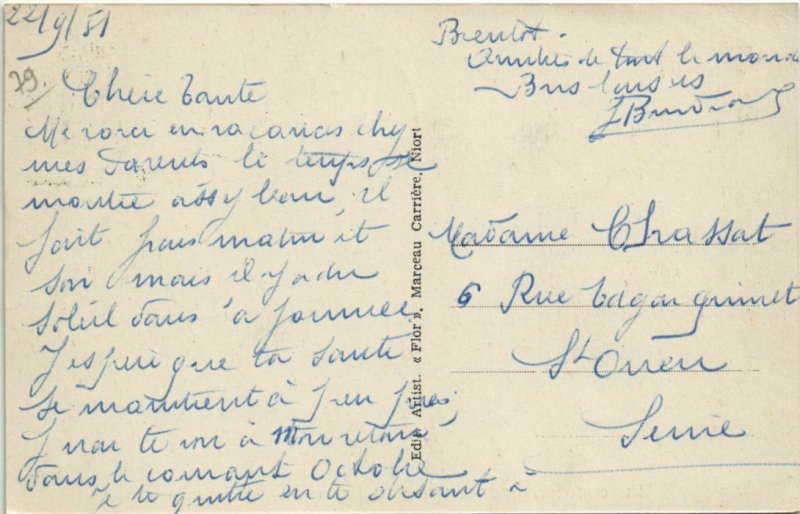 22/9/51
79.
Chère Tante
Me voici en vacances chez
mes parents le temps se
montre assez beau, il
fait frais matin et
soir mais il y a du
soleil dans la journée
J'espère que ta santé
se maintient à peu près,
J'irai te voir à mon retour
dans le courant Octobre
je te quitte en te disant à
Bientôt.
Amitiés de tout le monde
Bons baisers
Edit. Artist. « Flor ». Marceau Carrière. Niort
Madame Chassat
6 Rue Edgar Quinet
St Ouen
Seine